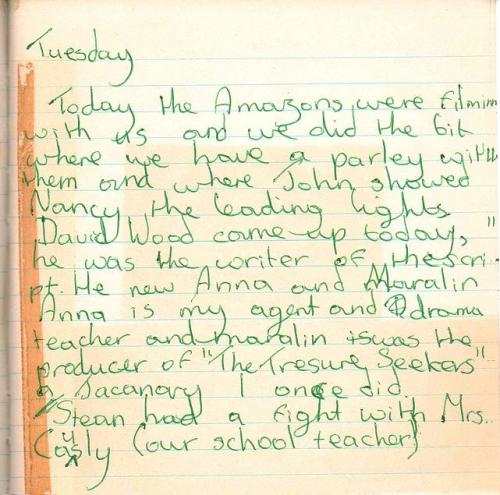 Tuesday
Today the Amazons were filmim
with us and we did the bit
where we have a parley with
them and where John showed
Nancy the leading lights
David Wood came up today,"
he was the writer of thescri-
pt. He new Anna and Maralin
Anna is my agent and drama
teacher and maralin was the
producer of "The Tresure Seekers"
a Jacanory I once did.
Stean had a fight with Mrs..
Causly (our school teacher)